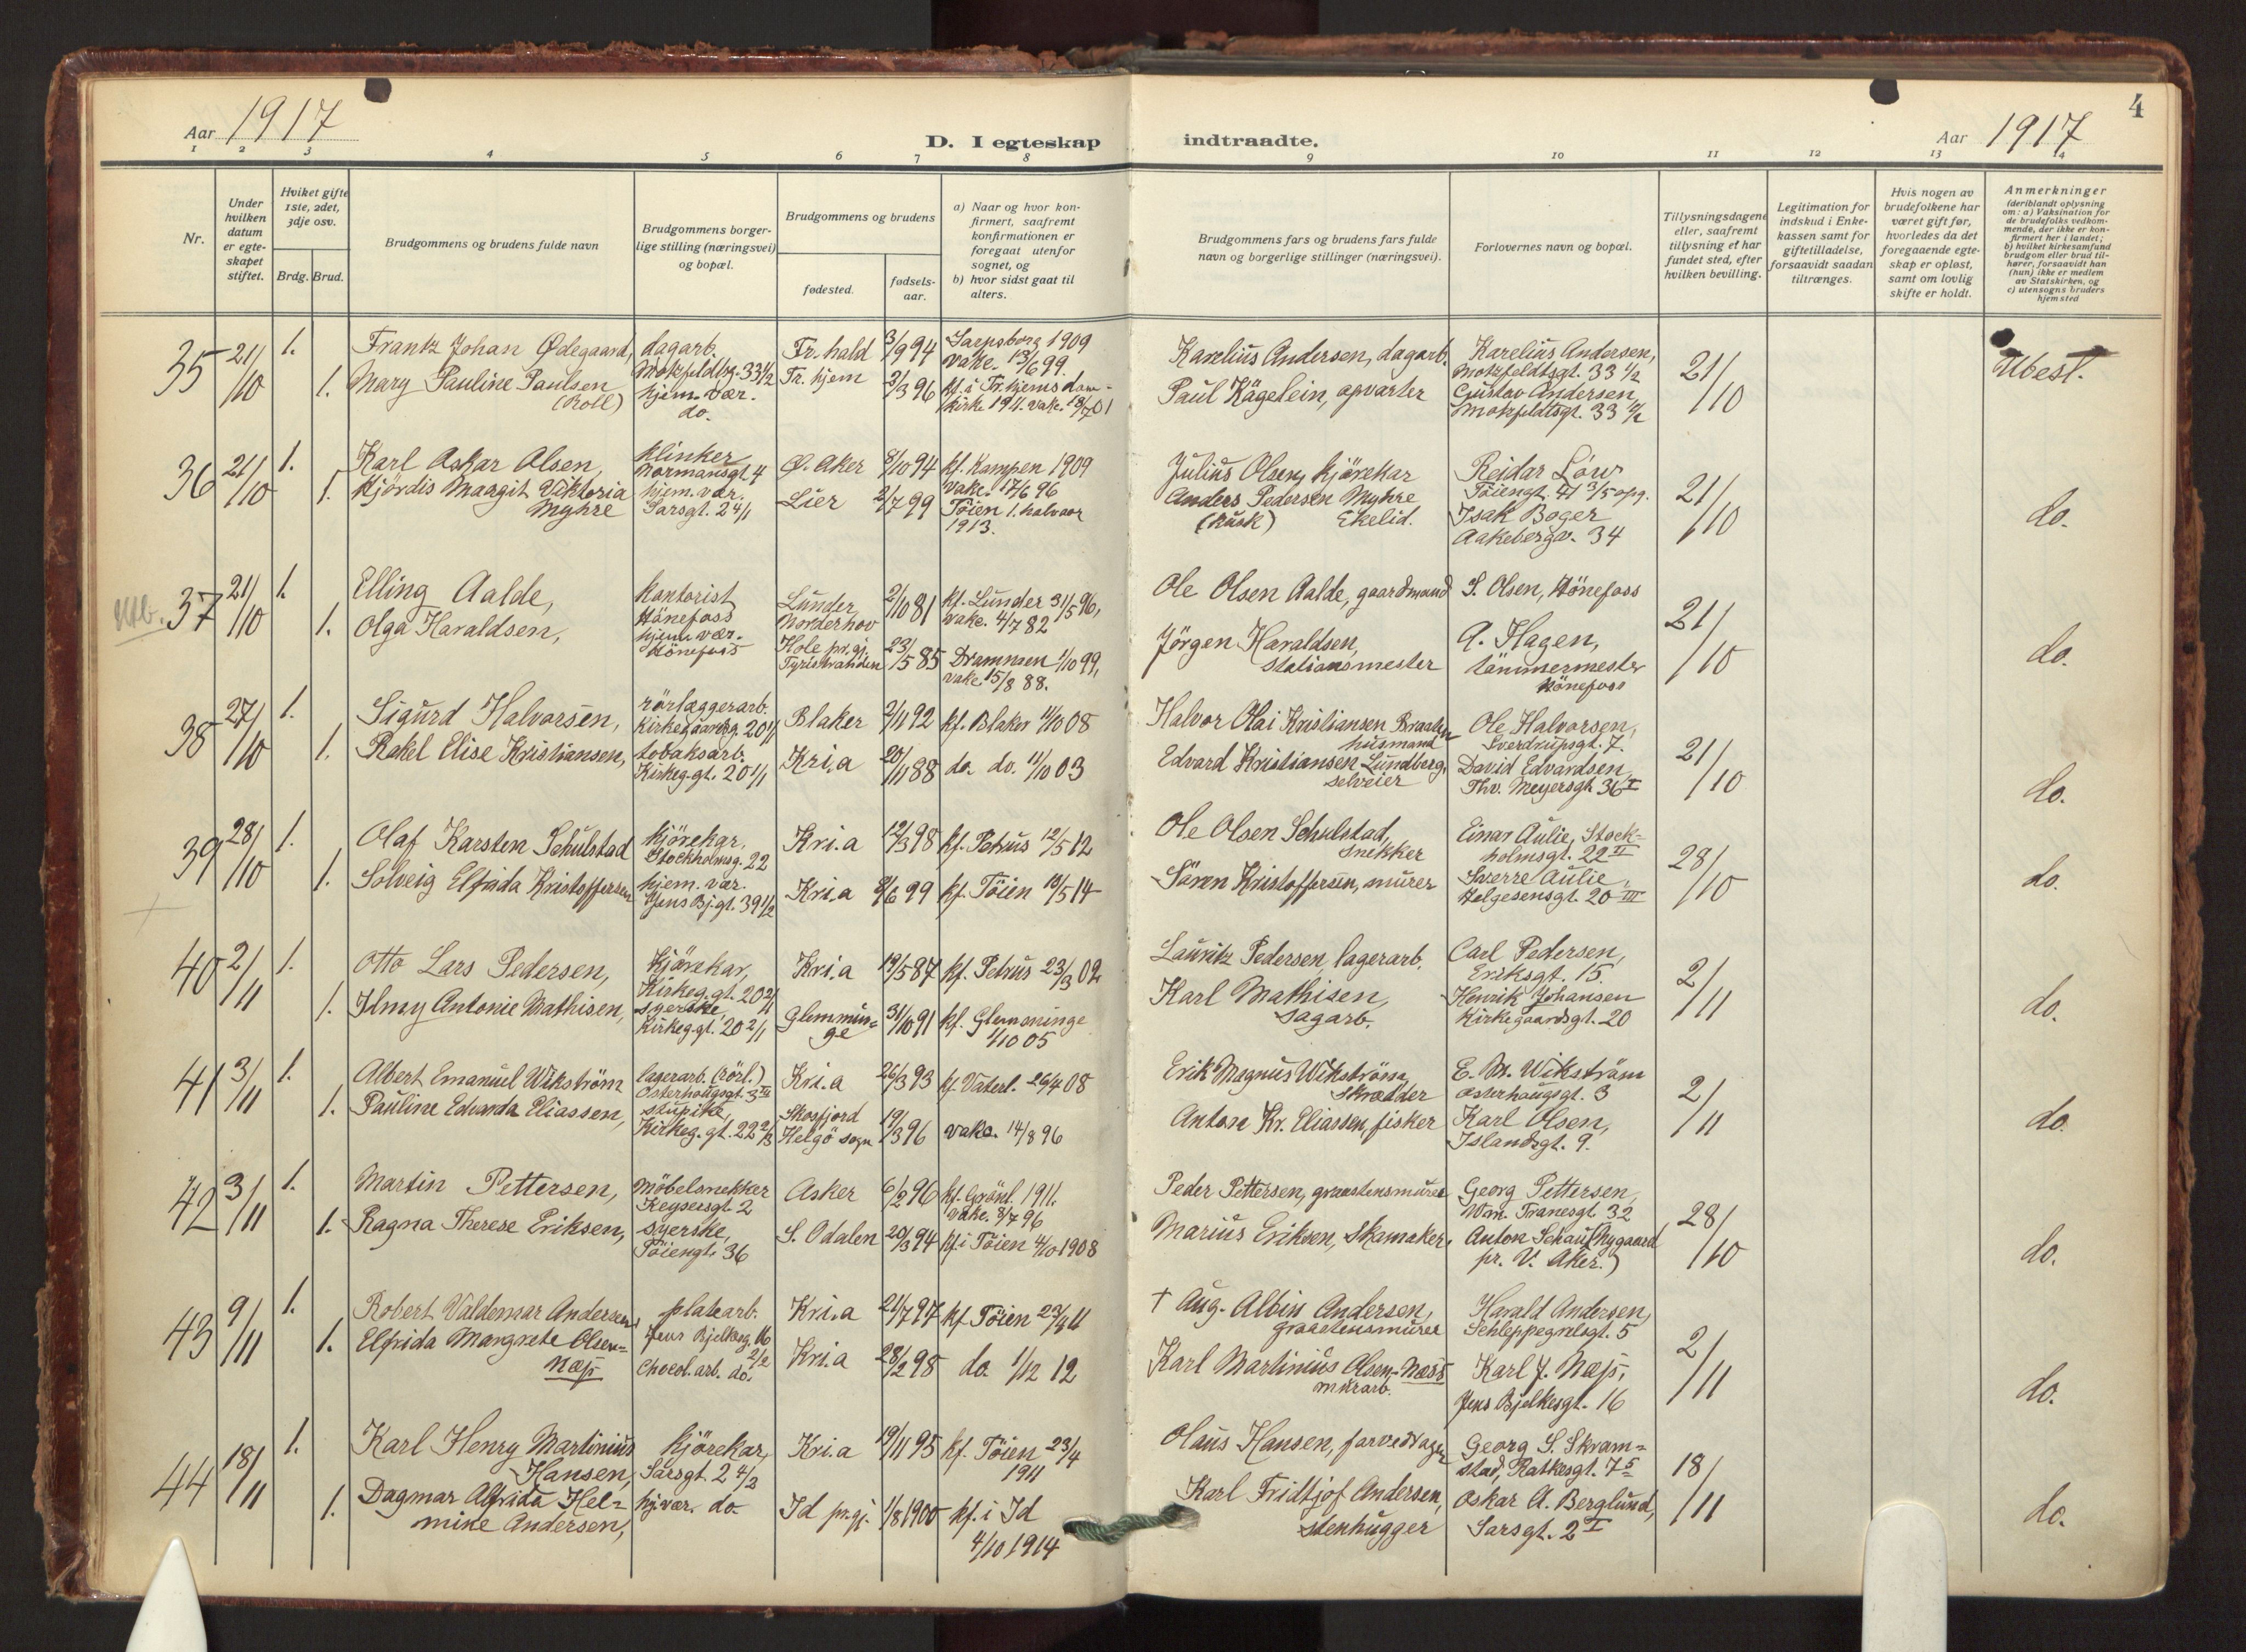 4
Aar 1917
D. I egteskap indtraadte.
Aar 1917
1 2 3 4 5 6 7 8 9 10 11 12 13 14
Nr.
Under hvilken datum er egteskapet stiftet.
Hviket gifte 1ste, 2det, 3dje osv.
Brdg. Brud.
Brudgommens og brudens fulde navn
Brudgommens borgerlige stilling (næringsvei) og bopæl.
Brudgommens og brudens
fødested.
fødselsaar.
a) Naar og hvor konfirmert, saafremt konfirmationen er foregaat utenfor sognet, og
b) hvor sidst gaat til alters.
Brudgommens fars og brudens fars fulde navn og borgerlige stillinger (næringsvei).
Forlovernes navn og bopæl.
Tillysningsdagene eller, saafremt tillysning et har fundet sted, efter hvilken bevilling.
Legitimation for indskud i Enkekassen samt for giftetilladelse, forsaavidt saadan tiltrænges.
Hvis nogen av brudefolkene har været gift før, hvorledes da det foregaaende egteskap er opløst, samt om lovlig skifte er holdt.
Anmerkninger
(deriblandt oplysning om: a) Vaksination for de brudefolks vedkommende, der ikke er konfirmert her i landet, b) hvilket kirkesamfund brudgom eller brud tilhører, forsaavidt han (hun) ikke er medlem av Statskirken, og c) utensogns bruders hjemsted
35 21/10 1. Frantz Johan Ødegaard, dagarb. Motzfeldtsg. 33 1/2 Fr.hald 3/9 94 Sarpsborg 1909 vakc. 13/6 99. Karelius Andersen, dagarb. Karelius Andersen, Motzfeldtsgt. 33 1/2 21/10 Ubest.
1. Mary Pauline Paulsen (Roll) hjem. vær. do. Tr. hjem 2/3 96 kf. i Tr.hjems domkirke 1911. vakc. 18/7 01 Paul Kägelein, opvarter Gustav Andersen, Motzfeldtsgt. 33 4/2
36 21/10 1. Karl Askar Olsen, klinker Normansgt. 4 Ø. Aker 8/10 94 kf. Kampen 1909 vakc. 17/6 96 Julius Olsen, kjörekar Reidar Löw Töiengt. 41 3/5 opg. 21/10 do.
1. Hjördis Margit Viktoria Myhre hjem. vær. Sarsgt. 2 4/1 Lier 2/7 99 Töien 1. halvaar 1913. Anders Pedersen Myhre (kusk) Ekelid. Isak Boger Aakebergv. 34
37 21/10 1. Elling Aalde, kontorist Hönefoss Lunder Norderhov 2/10 81 kf. Lunder 31/5 96, vakc. 4/7 82 Ole Olsen Aalde, gaardmand S. Olsen, Hönefoss 21/10 do.
1. Olga Haraldsen, hjem. vær. Hönefoss Hole pr.gj. Tyristranden 23/5 85 Drammen 1/10 99, vakc. 15/8 88. Jörgen Haraldsen, stationsmester A. Hagen, tömmermester Hönefoss
38 27/10 1. Sigurd Halvorsen, rörlæggerarb. Kirkegaardsg. 20 1/1 Blaker 2/11 92 kf. Blaker 11/10 08 Halvor Olai Kristiansen Braaten husmand Ole Halvorsen, Sverdrupsgt. 7. 21/10 do.
1. Rakel Elise Kristiansen, tobaksarb. Kirkeg.gt. 20 1/1 Kri.a 20/11 88 do. do. 11/10 03 Edvard Kristiansen Lundberg, selveier David Edvardsen, Thv. Meyersgt. 36 I
39 28/10 1. Olaf Karsten Schulstad kjörekar, Stockholmsg. 22 Kri.a 12/3 98 kf. Petrus 12/5 12 Ole Olsen Schulstad, snekker Einar Aulie, Stockholmsgt. 22 II 28/10 do.
1. Solveig Elfrida Kristoffersen hjem. vær. Jens Bj.gt. 39 1/2 Kri.a 8/6 99 kf. Töien 10/5 14 Sören Kristoffersen, murer Sverre Aulie, Helgesensgt. 20 III
40 2/11 1. Otto Lars Pedersen, kjörekar, Kirkeg.gt. 20 2/1 Kri.a 19/5 87 kf. Petrus 23/3 02 Lauritz Pedersen, lagerarb. Carl Pedersen, Eriksgt. 15. 2/11 do.
1. Ilmy Antonie Mathisen, syerske, Kirkeg.gt. 20 2/1 Glemminge 31/10 91 kf. Glemminge 1/10 05 Karl Mathisen, sagarb. Henrik Johansen Kirkegaardsgt. 20
41 3/11 1. Albert Emanuel Wikström lagerarb. (rörl.) Osterhougsgt. 3 III Kri.a 26/3 93 kf. Vaterl. 26/4 08 Erik Magnus Wikström, Skrædder E. M. Wikström Osterhaugsgt. 3 2/11 do.
1. Pauline Edvarda Eliassen, stupike, Kirkeg.gt. 22 2/3 Skosfjord Helgö sogn 19/3 96 vakc. 14/8 96 Anton Kr. Eliassen, fisker Karl Olsen, Islandsgt. 9.
42 3/11 1. Martin Pettersen, möbelsnekker Keysersgt. 2 Asker 6/2 96 kf. Grönl. 1911. vakc. 8/7 96 Peder Pettersen, graastensmurer Georg Pettersen, Wm. Tranesgt. 32 28/10 do.
1. Ragna Therese Eriksen, syerske, Töiengt. 36 S. Odalen 20/3 94 kf. i Töien 4/10 1908 Marius Eriksen, Skomaker, Anton Schau (Nygaard pr. V. Aker.)
43 9/11 1. Robert Valdemar Andersen, platearb. Jens Bjelkesg. 16 2/2 Kri.a 21/7 97 kf. Töien 23/4 11 † Aug. Albin Andersen, graastensmurer Harald Andersen, Schleppegrelsgt. 5 2/11 do.
1. Elfrida Margrete Olsen-Næss Chocol.arb. do. Kri.a 28/2 98 do. 1/12 12 Karl Martinius Olsen-Næss murarb. Karl J. Næss, Jens Bjelkesgt. 16
44 18/11 1. Karl Henry Martinius Hansen, kjörekar, Sarsgt. 2 4/2 Kri.a 19/11 95 kf. Töien 23/4 1911 Olaus Hansen, Georg S. Skramstad, Ratkesgt. 7 5 18/11 do.
1. Dagmar Alfrida Helmine Andersen, hj.vær. do. Id pr.gj. 1/8 1900 kf. i Id 4/10 1914 Karl Fridtjof Andersen, stenhugger Oskar A. Berglund, Sarsgt. 2 I